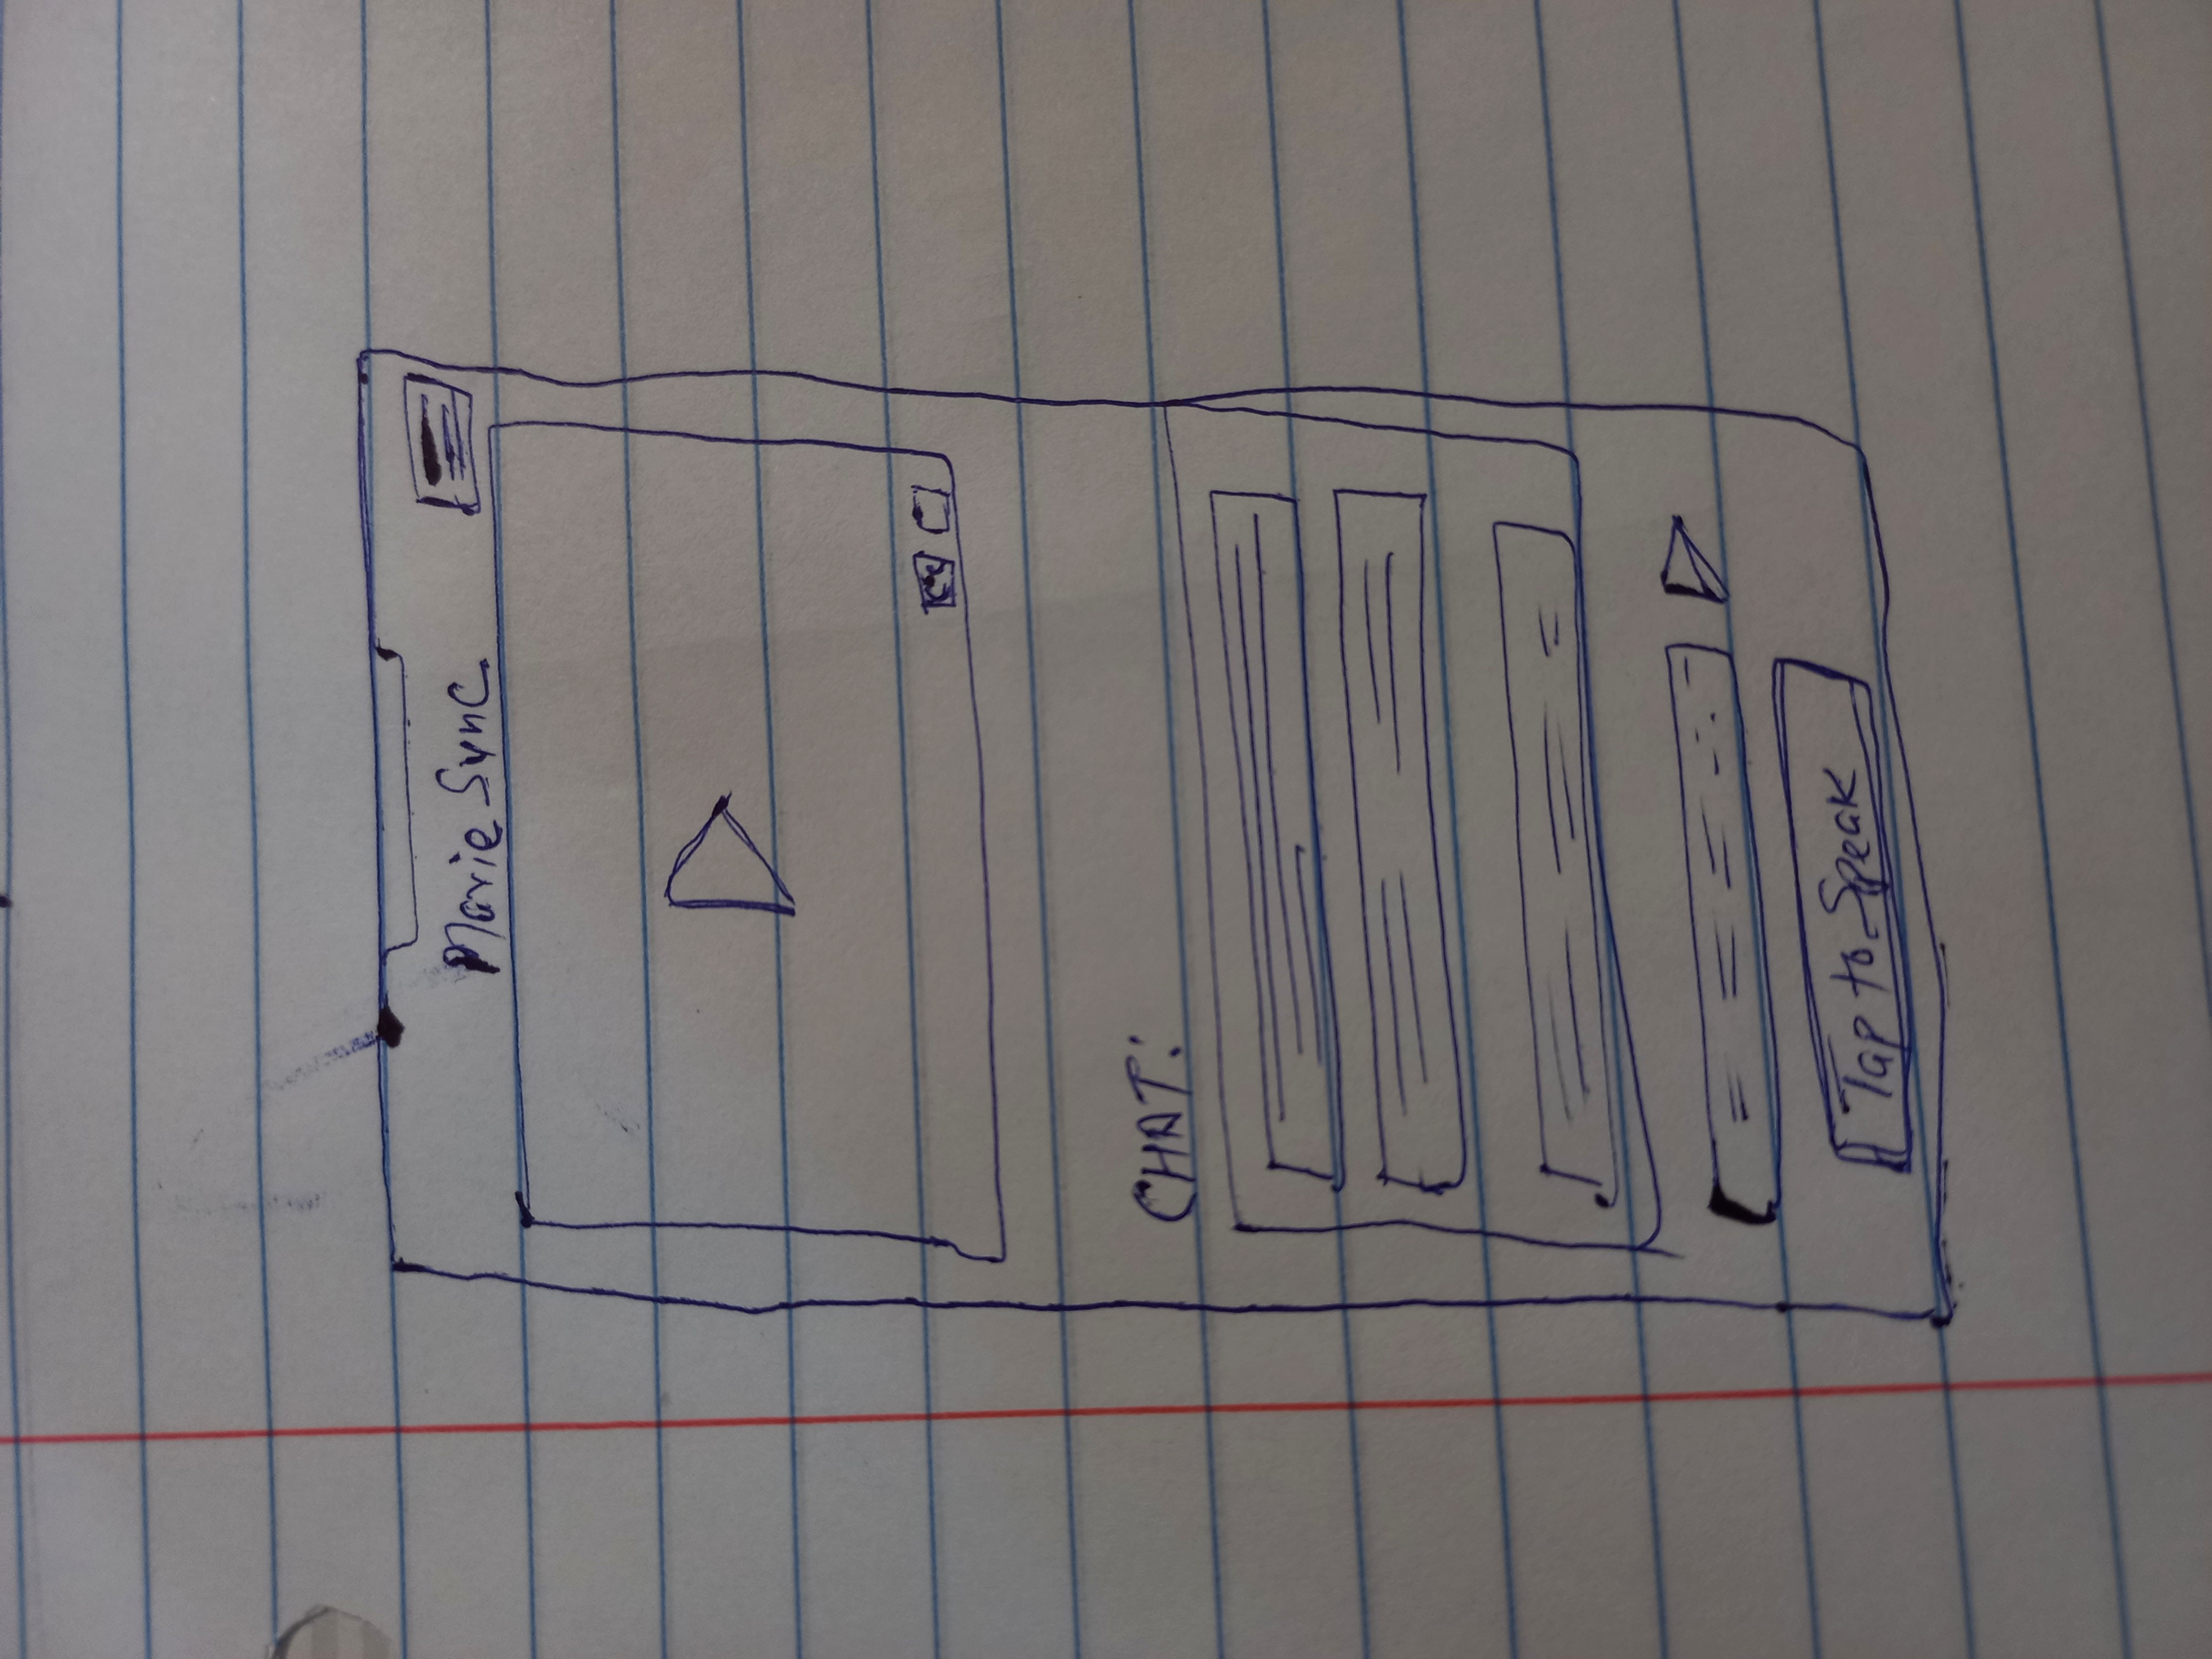 Movie Sync
CC
CHAT:
Tap to Speak